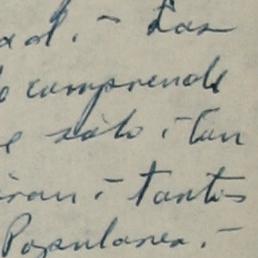 ad. - Las
comprende
e sólo i tan
iran i - tantos
Populares. -